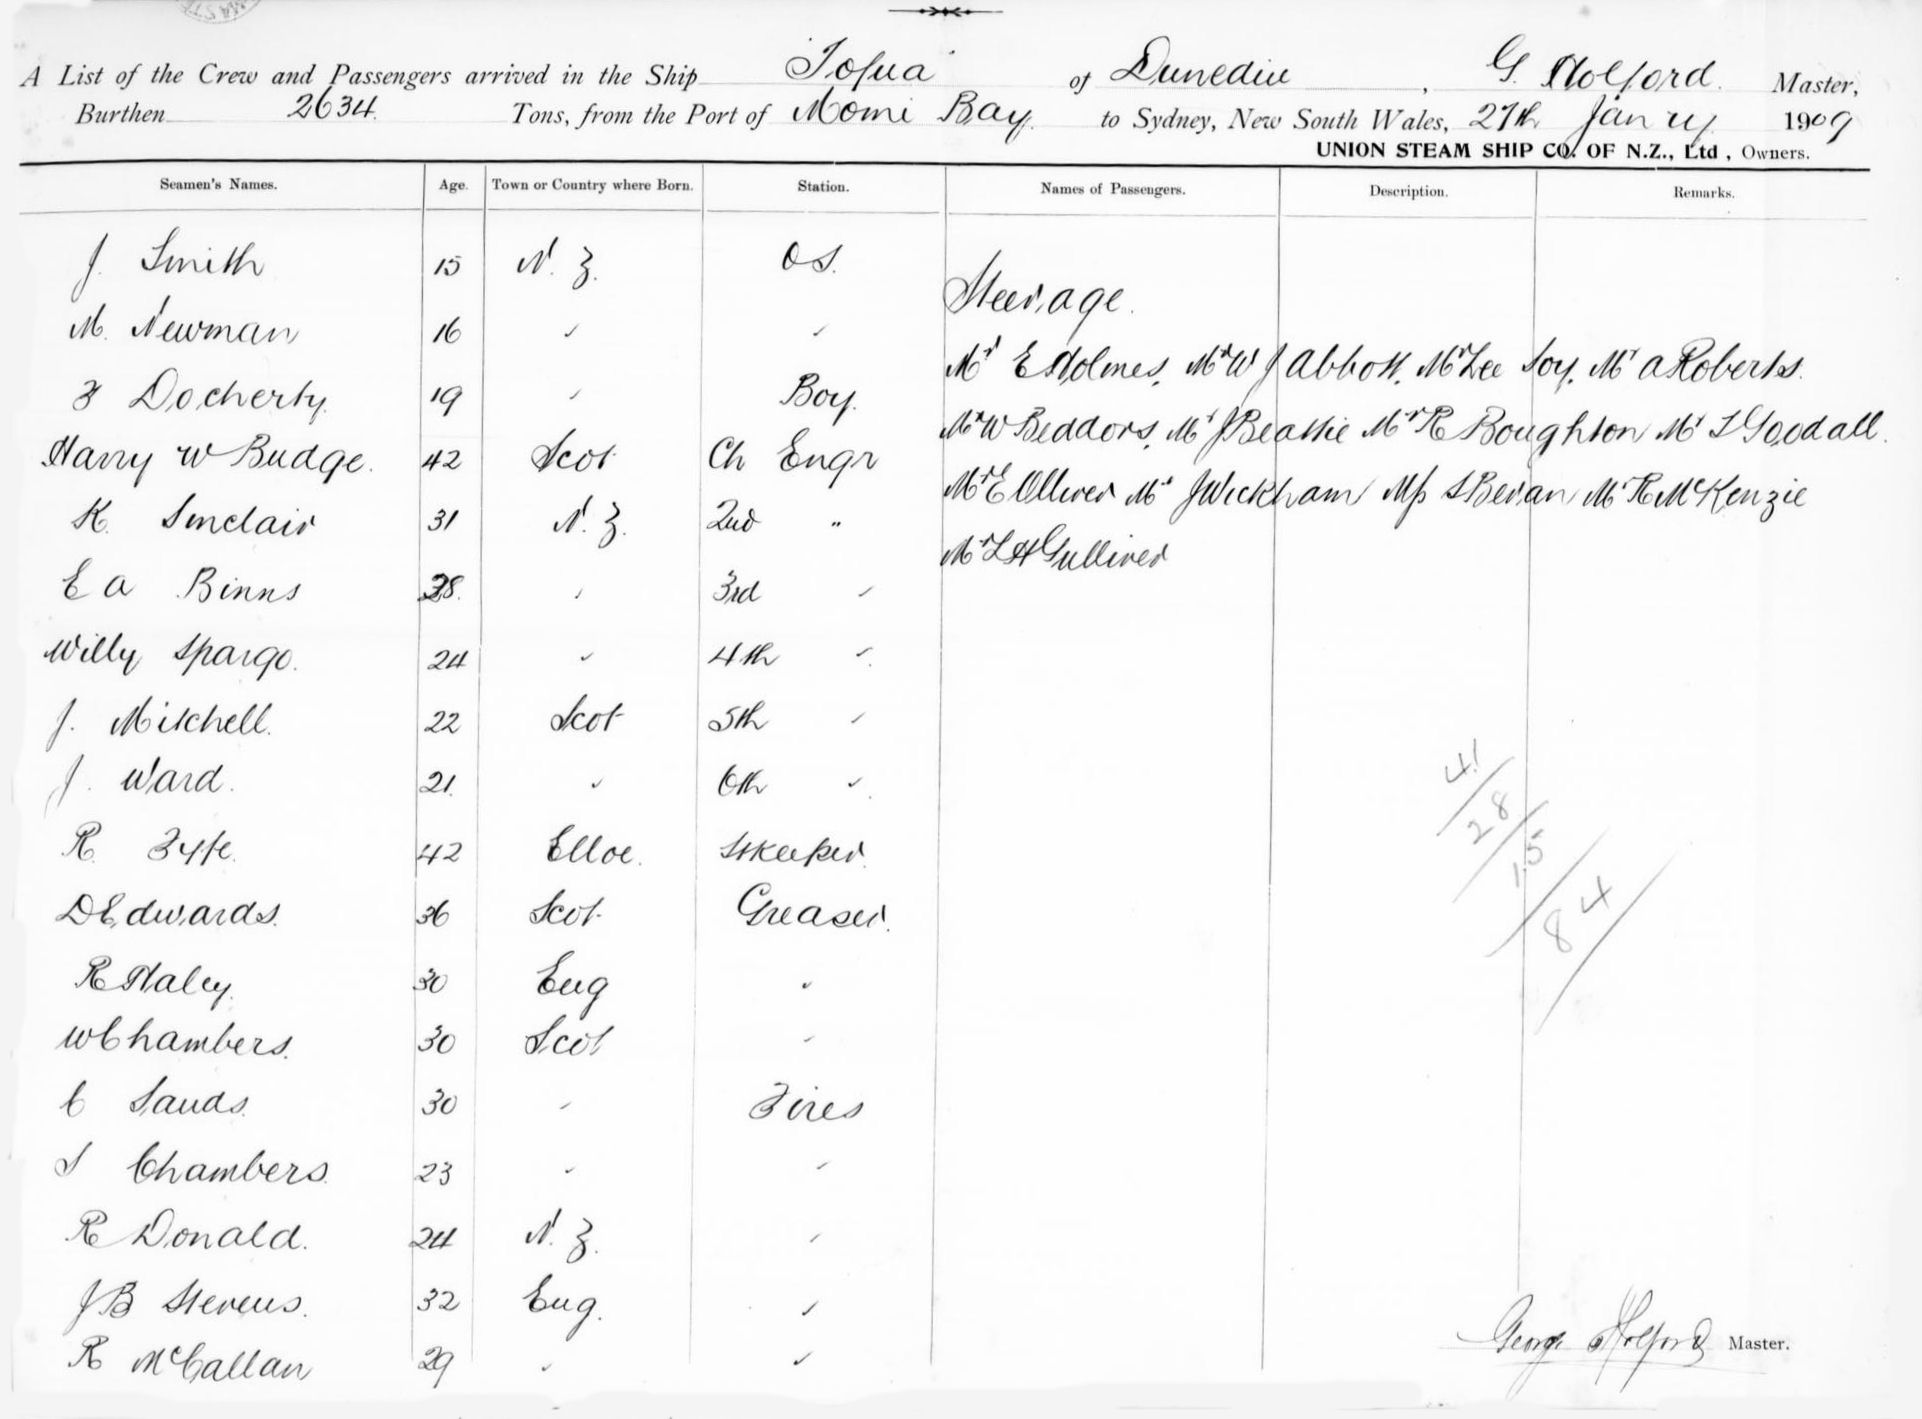 A List of the Crew and Passengers arrived in the Ship Tofua of Dunedin, G. Holford. Master,
Burthen 2634. Tons, from the Port of Momi Bay. to Sydney, New South Wales, 27th Jan'y. 1909
UNION STEAM SHIP CO. OF N.Z., Ltd, Owners.
Seamen's Names. Age. Town or Country where Born. Station. Names of Passengers. Description. Remarks.
J. Smith 15 N. Z. OS.
Steerage.
M. Newman 16 " "
Mr E Holmes, Mr W J Abbott, Mr Lee Soy, Mr A Roberts.
F Docherty. 19 " Boy.
Mr W Beddors, Mr J Beattie Mr R Boughton Mr T Goodall.
Harry W Budge. 42 Scot Ch Engr
Mr E Olliver Mr J Wickham Mr S Bevan Mr R McKenzie
K. Sinclair 31 N. Z. 2nd "
Mr L H Gulliver
E A Binns 38. " 3rd "
Willy Spargo. 24 " 4th "
J. Mitchell. 22 Scot 5th "
J. Ward. 21. " 6th "
41
28
15
84
R. Fyfe. 42 Stkeeper.
D Edwards. 36 Scot. Greaser.
R Haley. 30 Eng "
W Chambers. 30 Scot "
C Sands. 30 " Fires
S Chambers. 23 " "
R Donald. 24 N. Z. "
J B Stevens. 32 Eng. "
George Holford Master.
R McCallan 29 " "